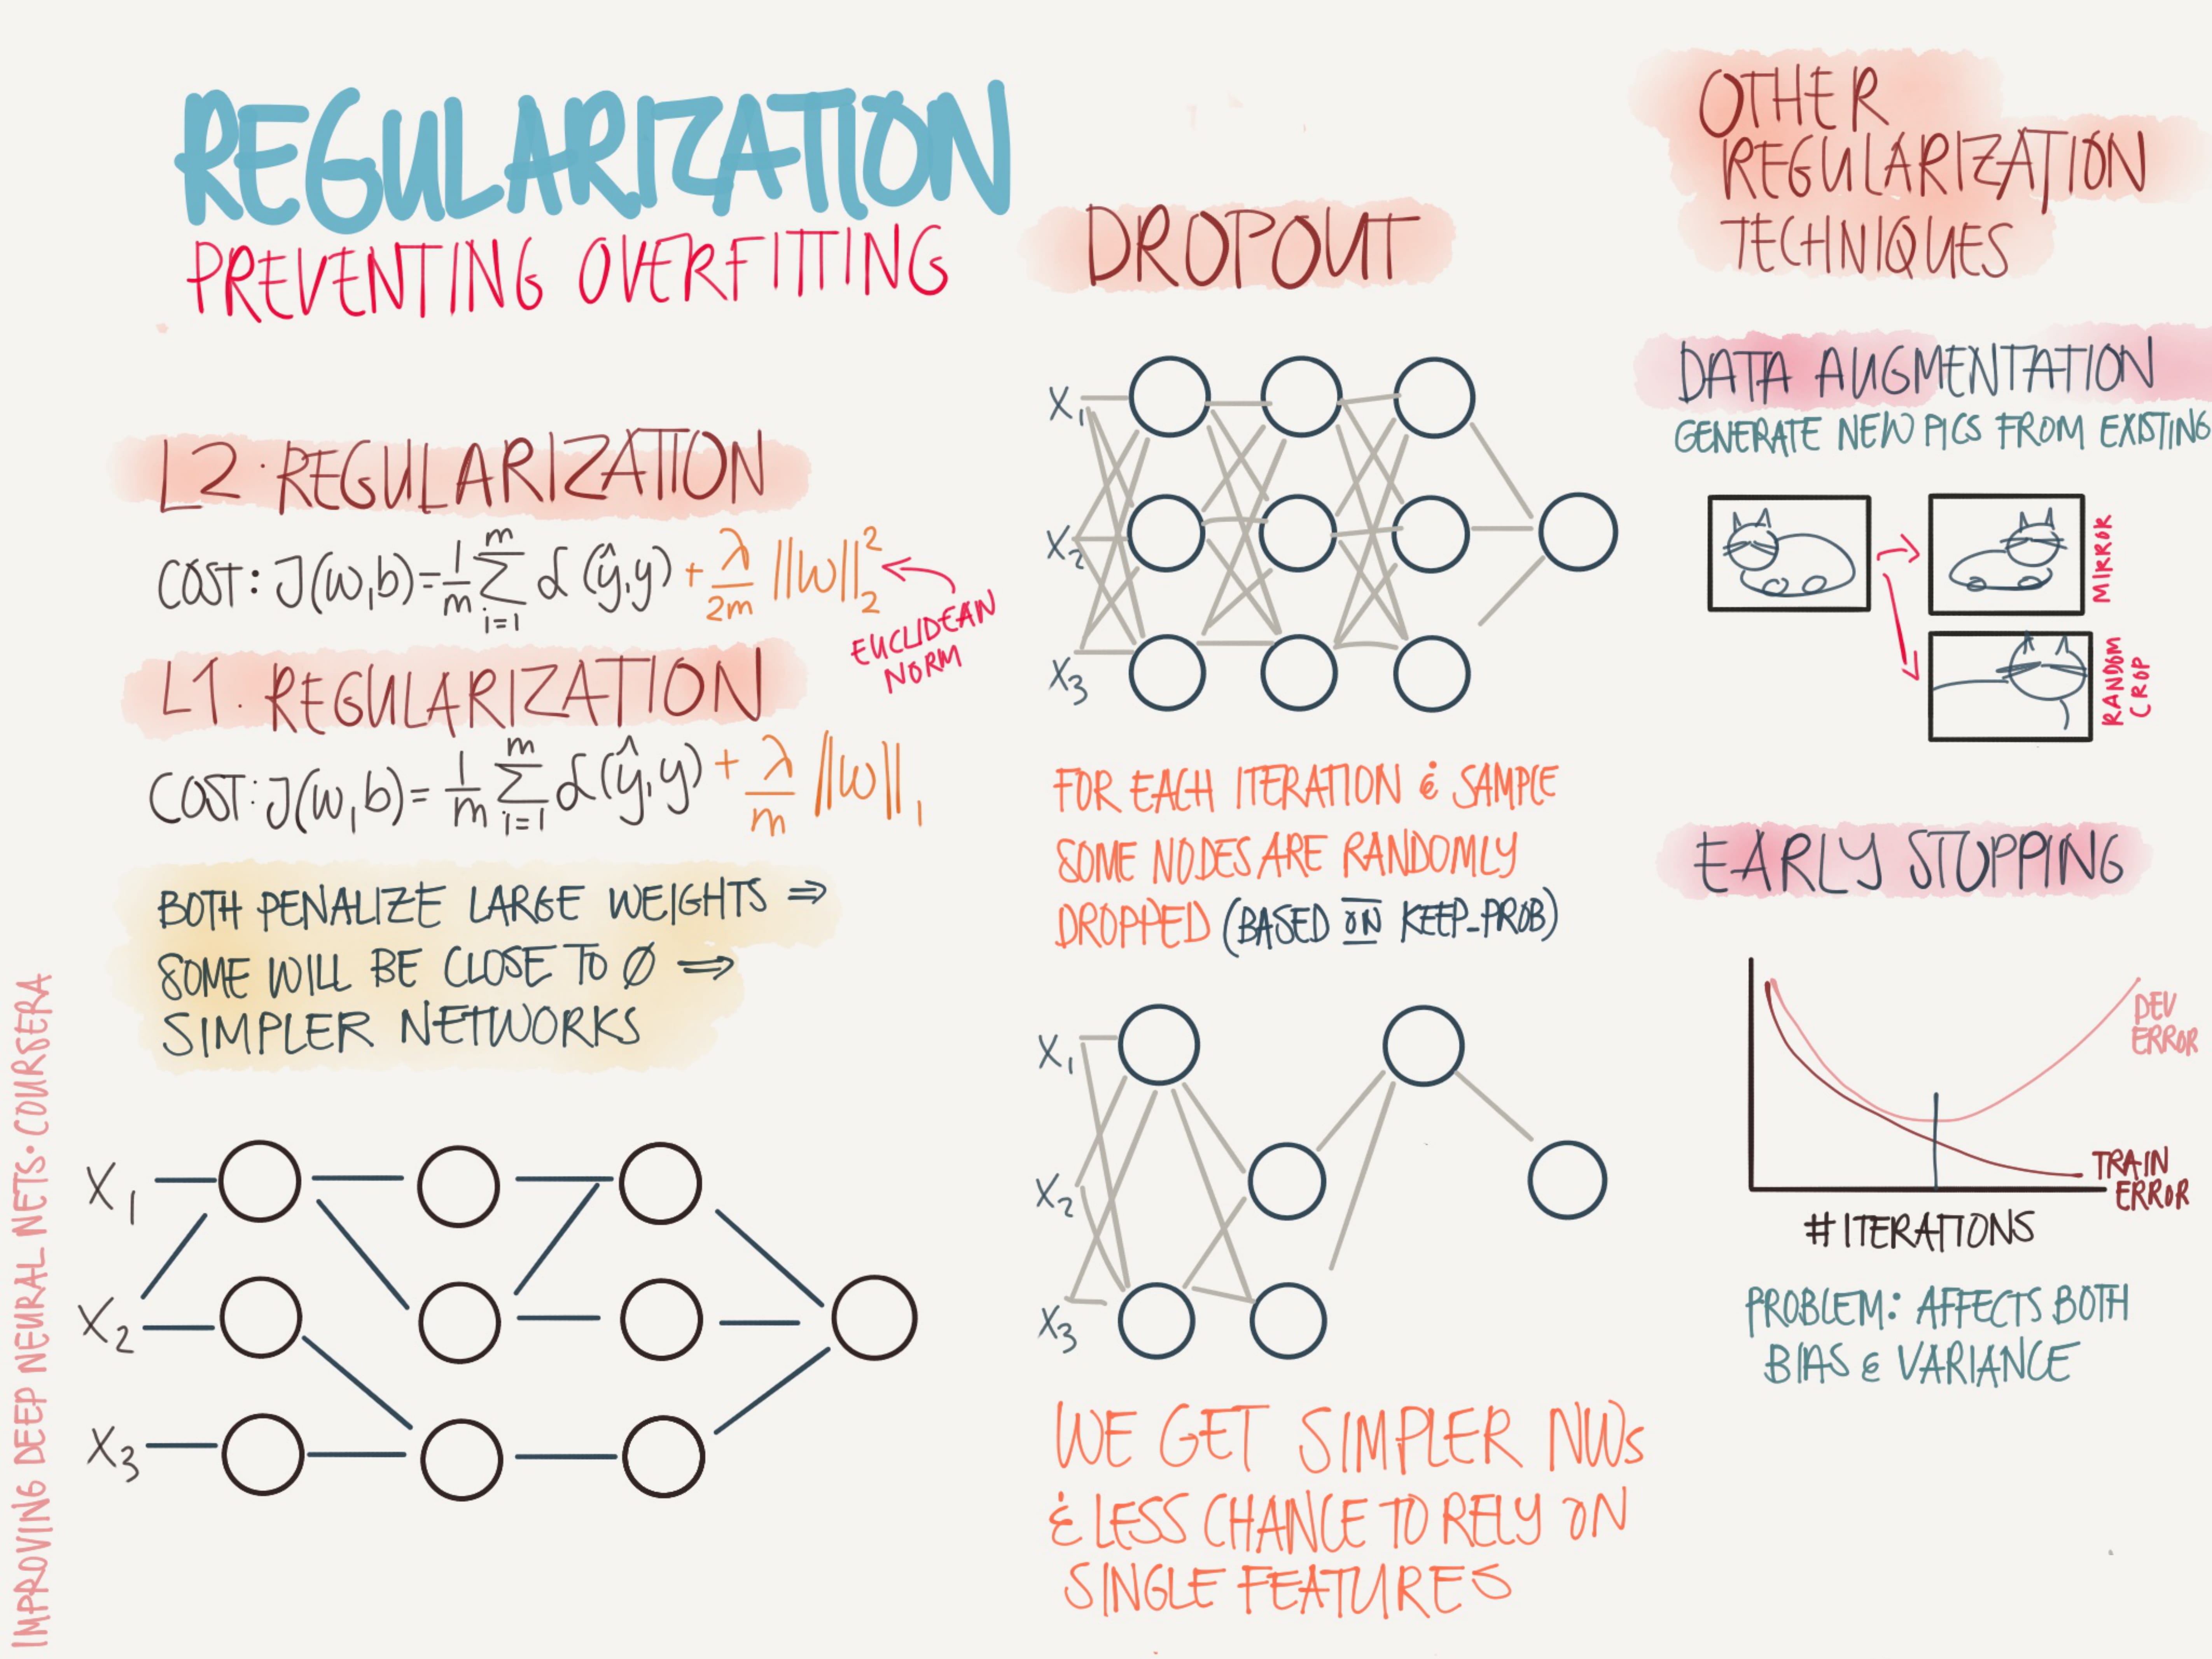 REGULARIZATION
PREVENTING OVERFITTING
L2·REGULARIZATION
COST: J(w,b) = 1/m Σ_{i=1}^{m} L(ŷ,y) + λ/2m ||w||₂²
EUCLIDEAN
NORM
L1·REGULARIZATION
COST: J(w,b) = 1/m Σ_{i=1}^{m} L(ŷ,y) + λ/m ||w||₁
BOTH PENALIZE LARGE WEIGHTS ⇒
SOME WILL BE CLOSE TO Ø ⇒
SIMPLER NETWORKS
X₁
X₂
X₃
IMPROVING DEEP NEURAL NETS·COURSERA
DROPOUT
X₁
X₂
X₃
FOR EACH ITERATION & SAMPLE
SOME NODES ARE RANDOMLY
DROPPED (BASED ON KEEP_PROB)
X₁
X₂
X₃
WE GET SIMPLER NWs
& LESS CHANCE TO RELY ON
SINGLE FEATURES
OTHER
REGULARIZATION
TECHNIQUES
DATA AUGMENTATION
GENERATE NEW PICS FROM EXISTING
MIRROR
RANDOM
CROP
EARLY STOPPING
DEV
ERROR
TRAIN
ERROR
# ITERATIONS
PROBLEM: AFFECTS BOTH
BIAS & VARIANCE